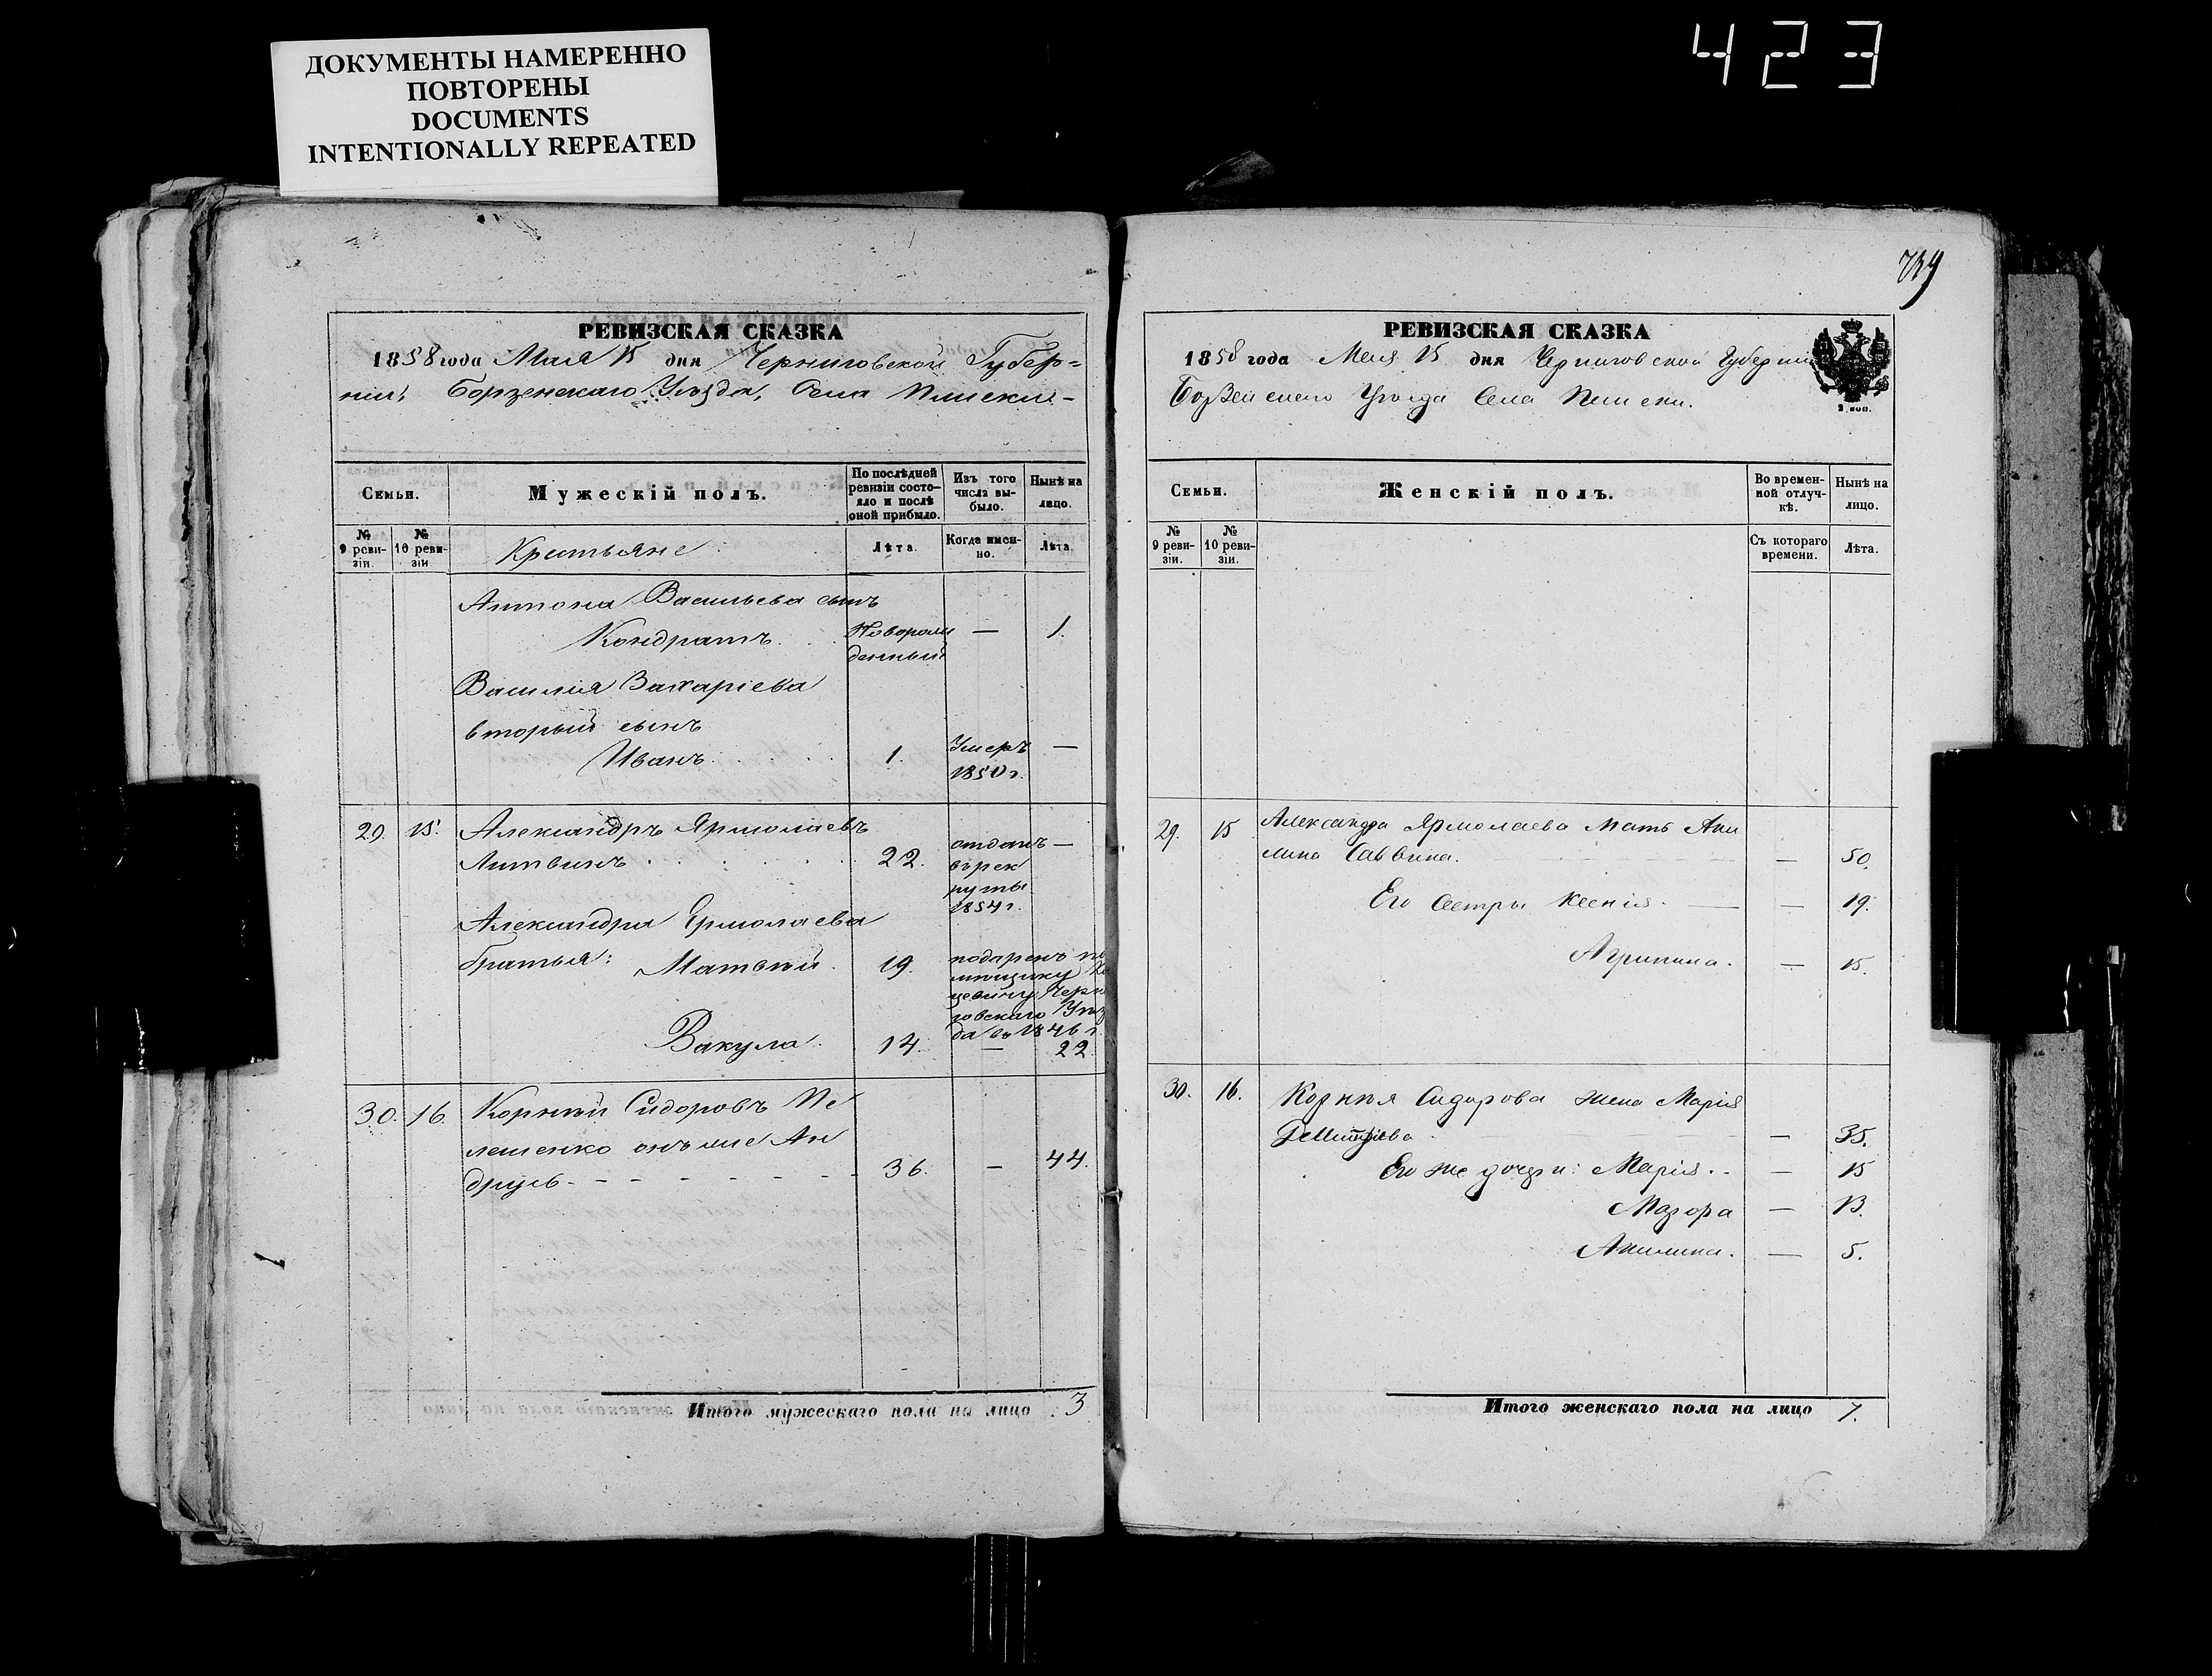 ДОКУМЕНТЫ НАМЕРЕННО
ПОВТОРЕНЫ
DOCUMENTS
INTENTIONALLY REPEATED
423
РЕВИЗСКАЯ СКАЗКА
1858 года Мая 15 дня Черниговской Губер=
ніи, Борзенскаго Уѣзда, Села Плиски-
Семьи.
Мужескій полъ.
По послѣдней
ревизіи состо-
яло и послѣ
оной прибыло.
Изъ того
числа вы-
было.
Нынѣ на
лицо.
№
9 реви-
зіи.
№
10 реви-
зіи.
Крестьяне
Лѣта.
Когда имен-
но.
Лѣта.
Антона Васильева сынъ
Кондратъ. Новорож
денный — 1.
Василія Захаріева
вторый сынъ
Иванъ. 1. Умеръ —
1850 г.
29. 15. Александръ Ярмолаевъ
Литвинъ 22. отданъ —
въ рек
руты
1854 г.
Александра Ермолаева
братья: Матвѣй. 19. подаренъ по
мѣщику
Черни
говскаго Уѣз
да въ 1846 г.
Вакула. 14. — 22.
30. 16. Корнѣй Сидоровъ Пе
лешенко онъ же Ан
друсь - - - - - - - 36. — 44.
Итого мужескаго пола на лицо 3
739
РЕВИЗСКАЯ СКАЗКА
1858 года Мая 15 дня Черниговской Губерніи
Борзенскаго Уѣзда Села Плиски.
2 коп.
Семьи.
Женскій полъ.
Во времен-
ной отлуч-
кѣ.
Нынѣ на
лицо.
№
9 реви-
зіи.
№
10 реви-
зіи.
Съ котораго
времени.
Лѣта.
29. 15 Александра Ярмолаева Мать Аки
лина Саввина. — 50.
Его Сестры Ксенія. — 19.
Агрипина. — 15.
30. 16. Корнѣя Сидорова жена Марія
— 35.
Его же дочери: Марія. — 15
— 13.
Акилина. — 5.
Итого женскаго пола на лицо 7.